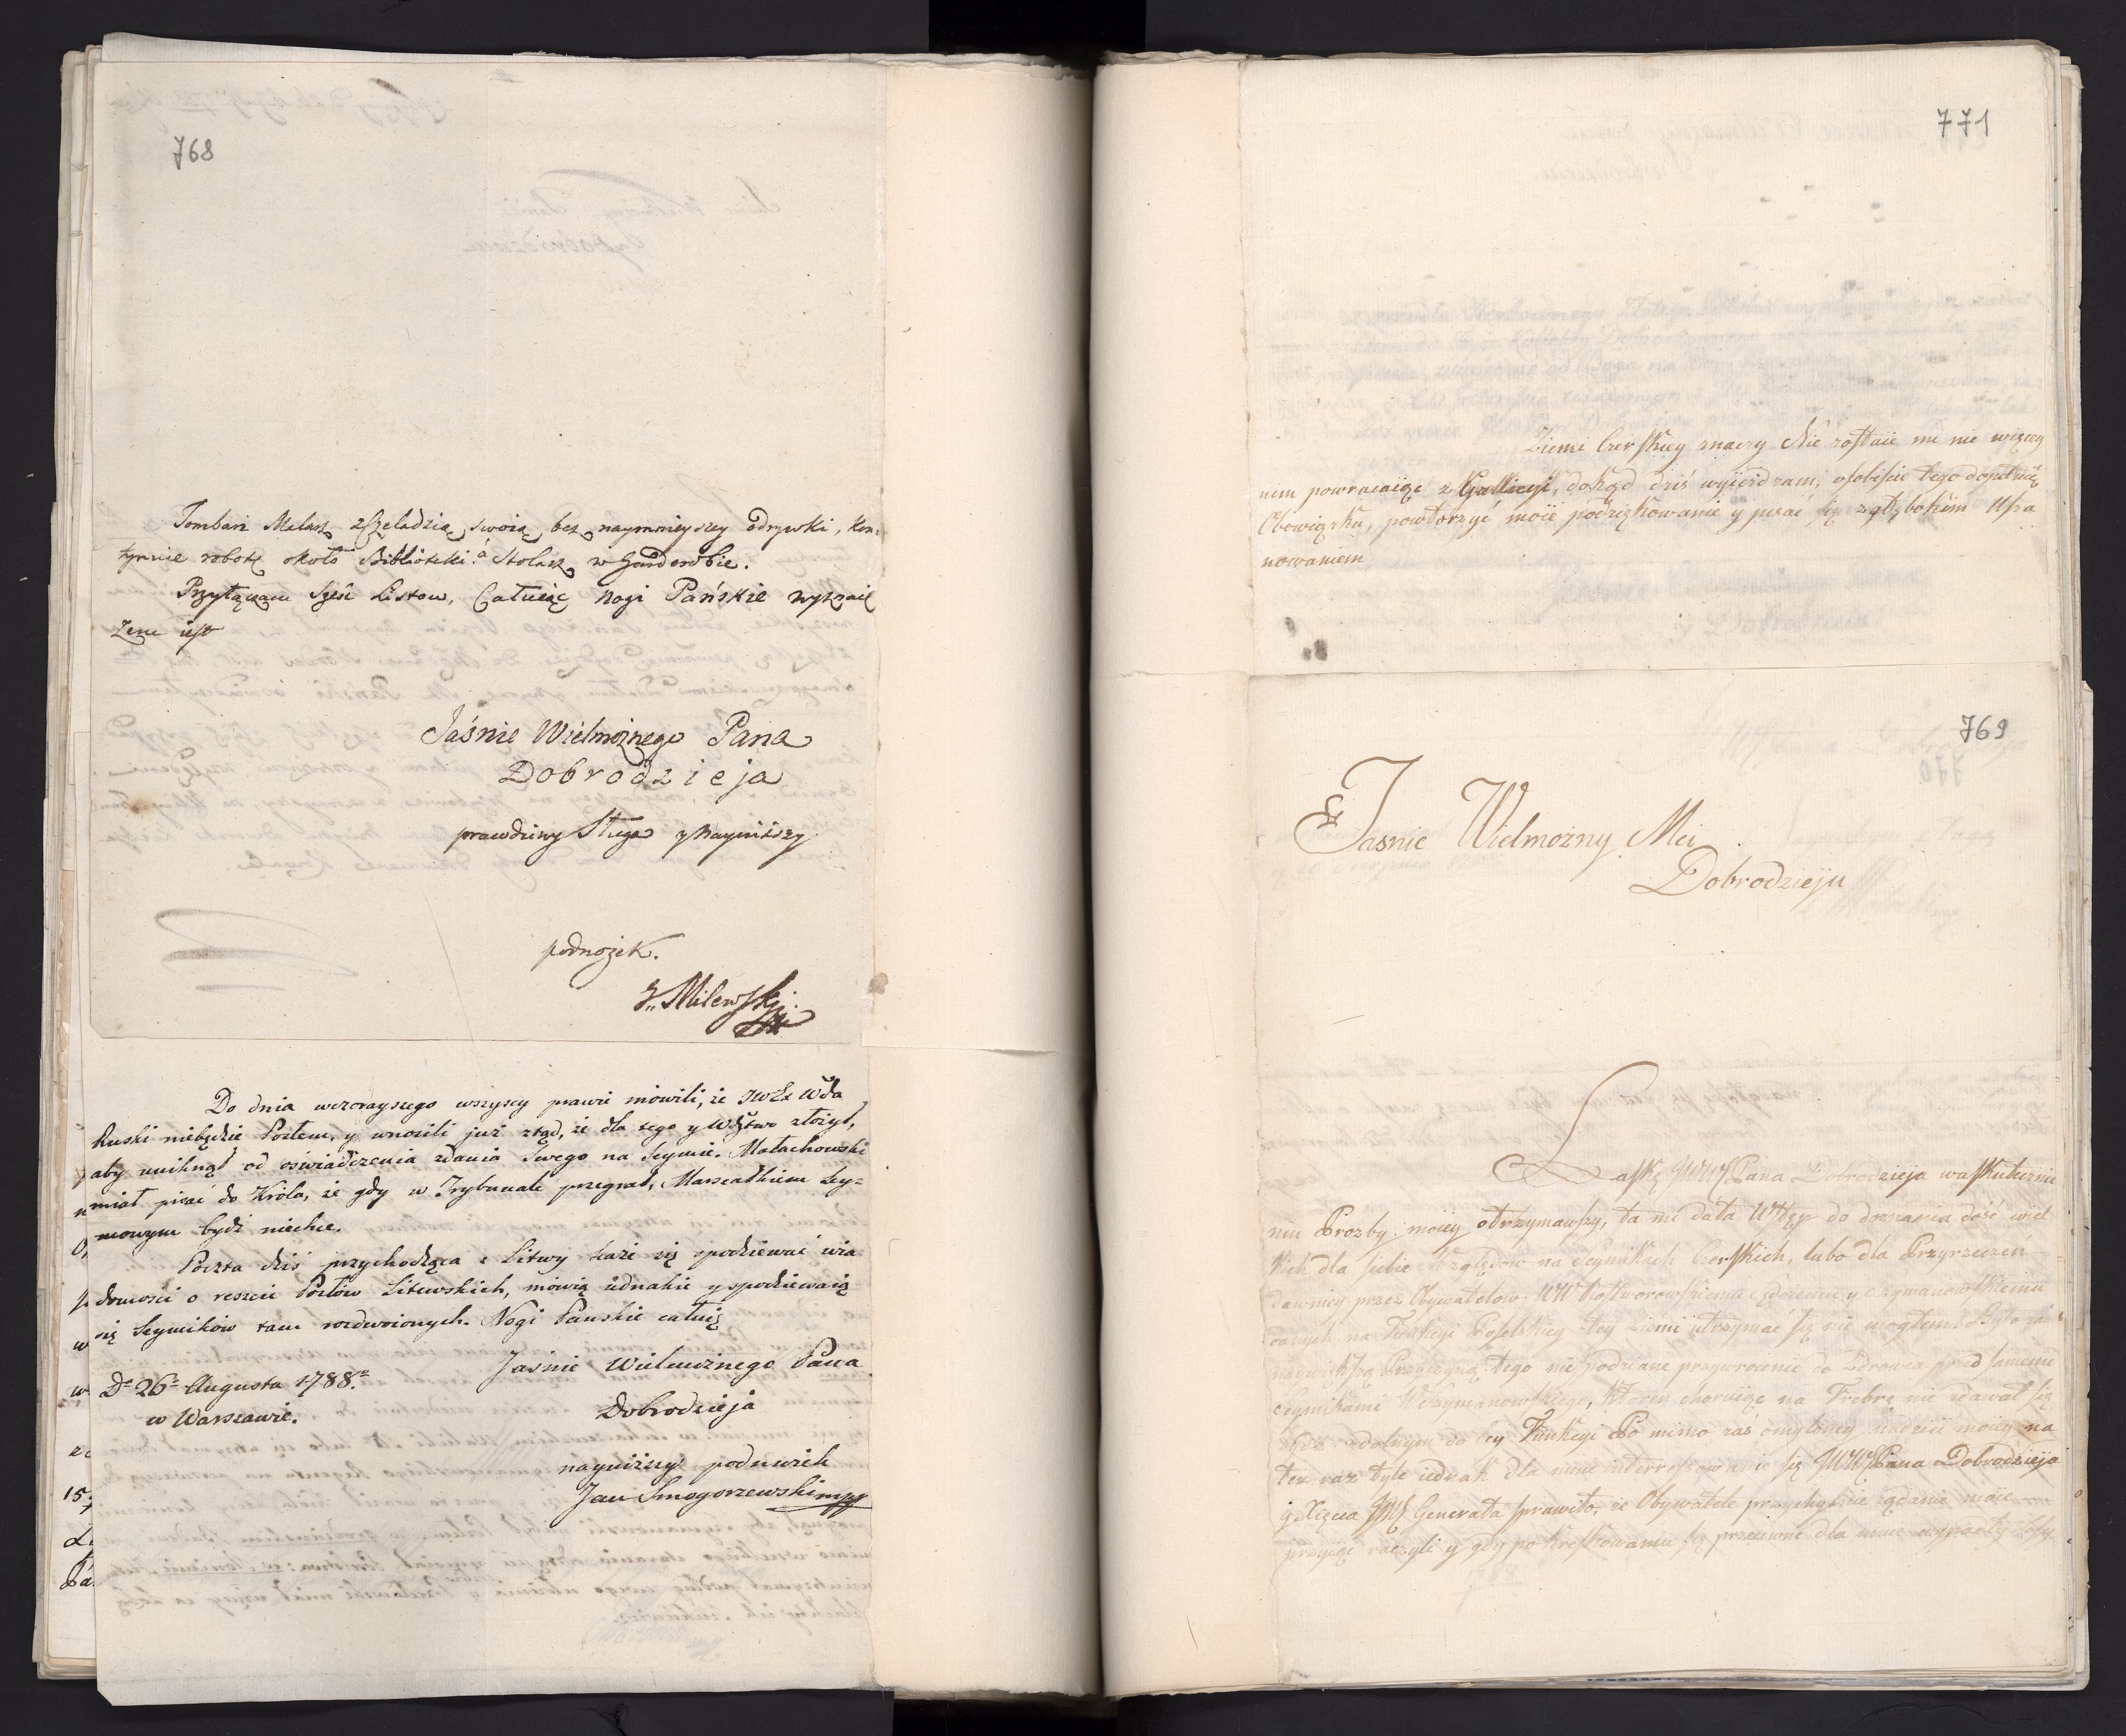 768
Tombari Malarz z Czeladzią swoią bez naymnieyszey odrywki, kon:
tynuie robotę około Biblioteki. á Stolarz w Garderobie.
Przyłączam Sześć Listow, Całuiąc Nogi Pańskie
iest
Jaśnie Wielmożnego Pana
Dobrodzieja
prawdziwy Sługa y Nayniższy
podnożek.
J. Milewski
Do dnia wczorayszego wszyscy prawie mówili, że JWX Wda
Ruski niebędzie Posłem, y wnosili już ztąd, że dla tego y Wdztwo złożył,
aby uniknął od oświadczenia zdania Swego na Seymie. Małachowski
miał pisać do Króla, że gdy w Trybunale przegrał, Marszałkiem Sey=
mowym bydź niechce.
Poczta dziś przychodząca z Litwy każe się spodziewać wia
domości o reszcie Posłów Litewskich, mówią iednakże y spodziewaią
się Seymików tam rozdwoionych. Nogi Pańskie całuię
Jaśnie Wielmożnego Pana
D. 26 Augusta 1788
Dobrodzieja
w Warszawie.
nayniższy podnóżek
Jan Smogorzewski mpp
771
Ziemi Czerskiey znaczy Nie zostaie mi nic więcey
nim powracaiąc z Gallicyi, dokąd dziś wyieżdzam, osobiście tego dopełnię
Obowiązku, powtorzyć moie podziękowanie y pisać się z głębokim Usza
nowaniem
769
Jasnie Wielmożny Mci
Dobrodzieju
Łaskę JWWPana Dobrodzieja w skutecznie
niu Prozby moiey otrzymawszy, ta mi dała Wstęp do doznania dość wiel
kich dla siebie Względow na Seymikach Czerskich, lubo dla Przyrzeczen
dawniey przez Obywatelow WW Ostworowskiemu y Szymanowskiemu
danych na Funkcyi Poselskiey tey Ziemi utrzymać się nie mogłem. Było zaś
naywiększą Przyczyną tego nie spodziane przywrocenie do Zdrowia przed samemi
Seymikami W Szymanowskiego, ktoren choruiąc na Febrę nie zdawał się
bydź zdolnym do tey Funkcyi Po mimo zaś omyloney nadziei moiey na
ten raz tyle iednak dla mnie interressowanie się JWWPana Dobrodzieja
y Xięcia JMci Generała sprawiło, że Obywatele przychylnie żądanie moie
przyiąć raczyli y gdy po kreskowaniu się przeciwne dla mnie wypadły losy